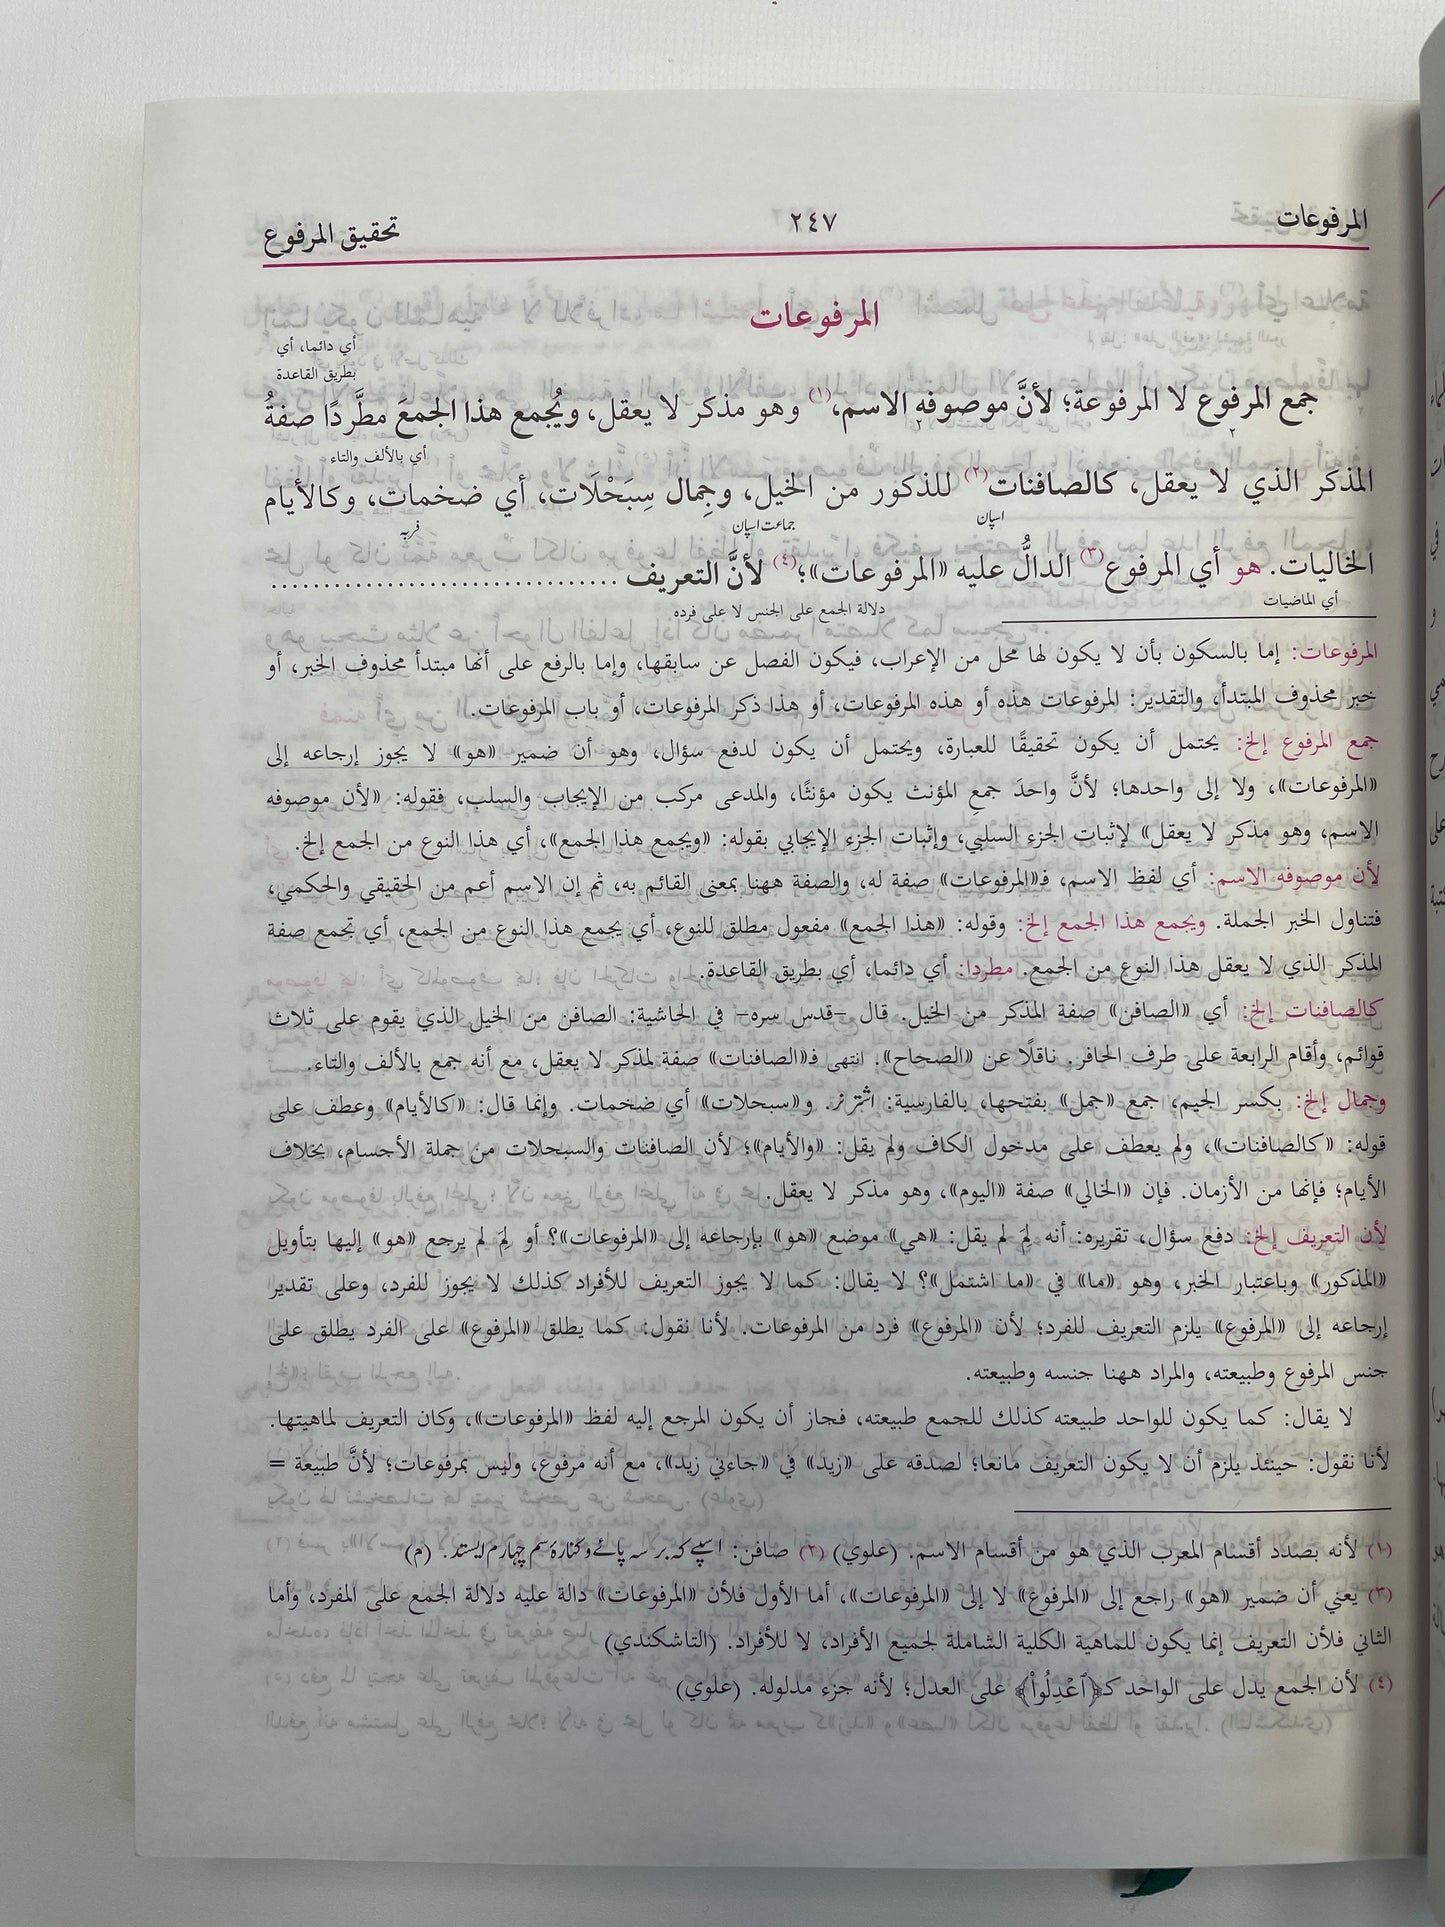 المرفوعات ٢٤٧ تحقيق المرفوع
المرفوعات
أي دائما، أي
بطريق القاعدة
جمع المرفوع لا المرفوعة؛ لأنَّ موصوفه الاسم،(١) وهو مذكر لا يعقل، ويُجمع هذا الجمعَ مطَّردًا صفةُ
٢ ٢
أي بالألف والتاء
المذكر الذي لا يعقل، كالصافنات(٢) للذكور من الخيل، وجِمال سِبَحْلَات، أي ضخمات، وكالأيام
اسپان جماعت اسپان فربه
الخاليات. هو أي المرفوع(٣) الدالُّ عليه «المرفوعات»؛(٤) لأنَّ التعريف ................................
أي الماضيات دلالة الجمع على الجنس لا على فرده
المرفوعات: إما بالسكون بأن لا يكون لها محل من الإعراب، فيكون الفصل عن سابقها، وإما بالرفع على أنها مبتدأ محذوف الخبر، أو
خبر محذوف المبتدأ، والتقدير: المرفوعات هذه أو هذه المرفوعات، أو هذا ذكر المرفوعات، أو باب المرفوعات.
جمع المرفوع إلخ: يحتمل أن يكون تحقيقًا للعبارة، ويحتمل أن يكون لدفع سؤال، وهو أن ضمير «هو» لا يجوز إرجاعه إلى
«المرفوعات»، ولا إلى واحدها؛ لأنَّ واحدَ جمعِ المؤنث يكون مؤنثًا، والمدعى مركب من الإيجاب والسلب، فقوله: «لأن موصوفه
الاسم، وهو مذكر لا يعقل» لإثبات الجزء السلبي، وإثبات الجزء الإيجابي بقوله: «ويجمع هذا الجمع»، أي هذا النوع من الجمع إلخ.
لأن موصوفه الاسم: أي لفظ الاسم، فـ«المرفوعات» صفة له، والصفة ههنا بمعنى القائم به، ثم إن الاسم أعم من الحقيقي والحكمي،
فتناول الخبر الجملة. ويجمع هذا الجمع إلخ: وقوله: «هذا الجمع» مفعول مطلق للنوع، أي يجمع هذا النوع من الجمع، أي تجمع صفة
المذكر الذي لا يعقل هذا النوع من الجمع. مطردا: أي دائما، أي بطريق القاعدة.
كالصافنات إلخ: أي «الصافن» صفة المذكر من الخيل. قال –قدس سره– في الحاشية: الصافن من الخيل الذي يقوم على ثلاث
قوائم، وأقام الرابعة على طرف الحافر. ناقلًا عن «الصحاح». انتهى فـ«الصافنات» صفة لمذكر لا يعقل، مع أنه جمع بالألف والتاء.
وجمال إلخ: بكسر الجيم، جمع «جمل» بفتحها، بالفارسية: اشتر نر. و«سبحلات» أي ضخمات. وإنما قال: «كالأيام» وعطف على
قوله: «كالصافنات»، ولم يعطف على مدخول الكاف ولم يقل: «والأيام»؛ لأن الصافنات والسبحلات من جملة الأجسام، بخلاف
الأيام؛ فإنها من الأزمان. فإن «الخالي» صفة «اليوم»، وهو مذكر لا يعقل.
لأن التعريف إلخ: دفع سؤال، تقريره: أنه لِمَ لم يقل: «هي» موضع «هو» بإرجاعه إلى «المرفوعات»؟ أو لِمَ لم يرجع «هو» إليها بتأويل
«المذكور» وباعتبار الخبر، وهو «ما» في «ما اشتمل»؟ لا يقال: كما لا يجوز التعريف للأفراد كذلك لا يجوز للفرد، وعلى تقدير
إرجاعه إلى «المرفوع» يلزم التعريف للفرد؛ لأن «المرفوع» فرد من المرفوعات. لأنا نقول: كما يطلق «المرفوع» على الفرد يطلق على
جنس المرفوع وطبيعته، والمراد ههنا جنسه وطبيعته.
لا يقال: كما يكون للواحد طبيعته كذلك للجمع طبيعته، فجاز أن يكون المرجع إليه لفظ «المرفوعات»، وكان التعريف لماهيتها.
لأنا نقول: حينئذ يلزم أن لا يكون التعريف مانعا؛ لصدقه على «زيد» في «جاءني زيد»، مع أنه مرفوع، وليس بمرفوعات؛ لأنَّ طبيعة =
(١) لأنه بصدد أقسام المعرب الذي هو من أقسام الاسم. (علوي) (٢) صافن: اسپے کہ بر سہ پائے وکنارہ سم چہارم ایستد. (م)
(٣) يعني أن ضمير «هو» راجع إلى «المرفوع» لا إلى «المرفوعات»، أما الأول فلأن «المرفوعات» دالة عليه دلالة الجمع على المفرد، وأما
الثاني فلأن التعريف إنما يكون للماهية الكلية الشاملة لجميع الأفراد، لا للأفراد. (التاشكندي)
(٤) لأن الجمع يدل على الواحد كـ﴿ٱعْدِلُواْ﴾ على العدل؛ لأنه جزء مدلوله. (علوي)